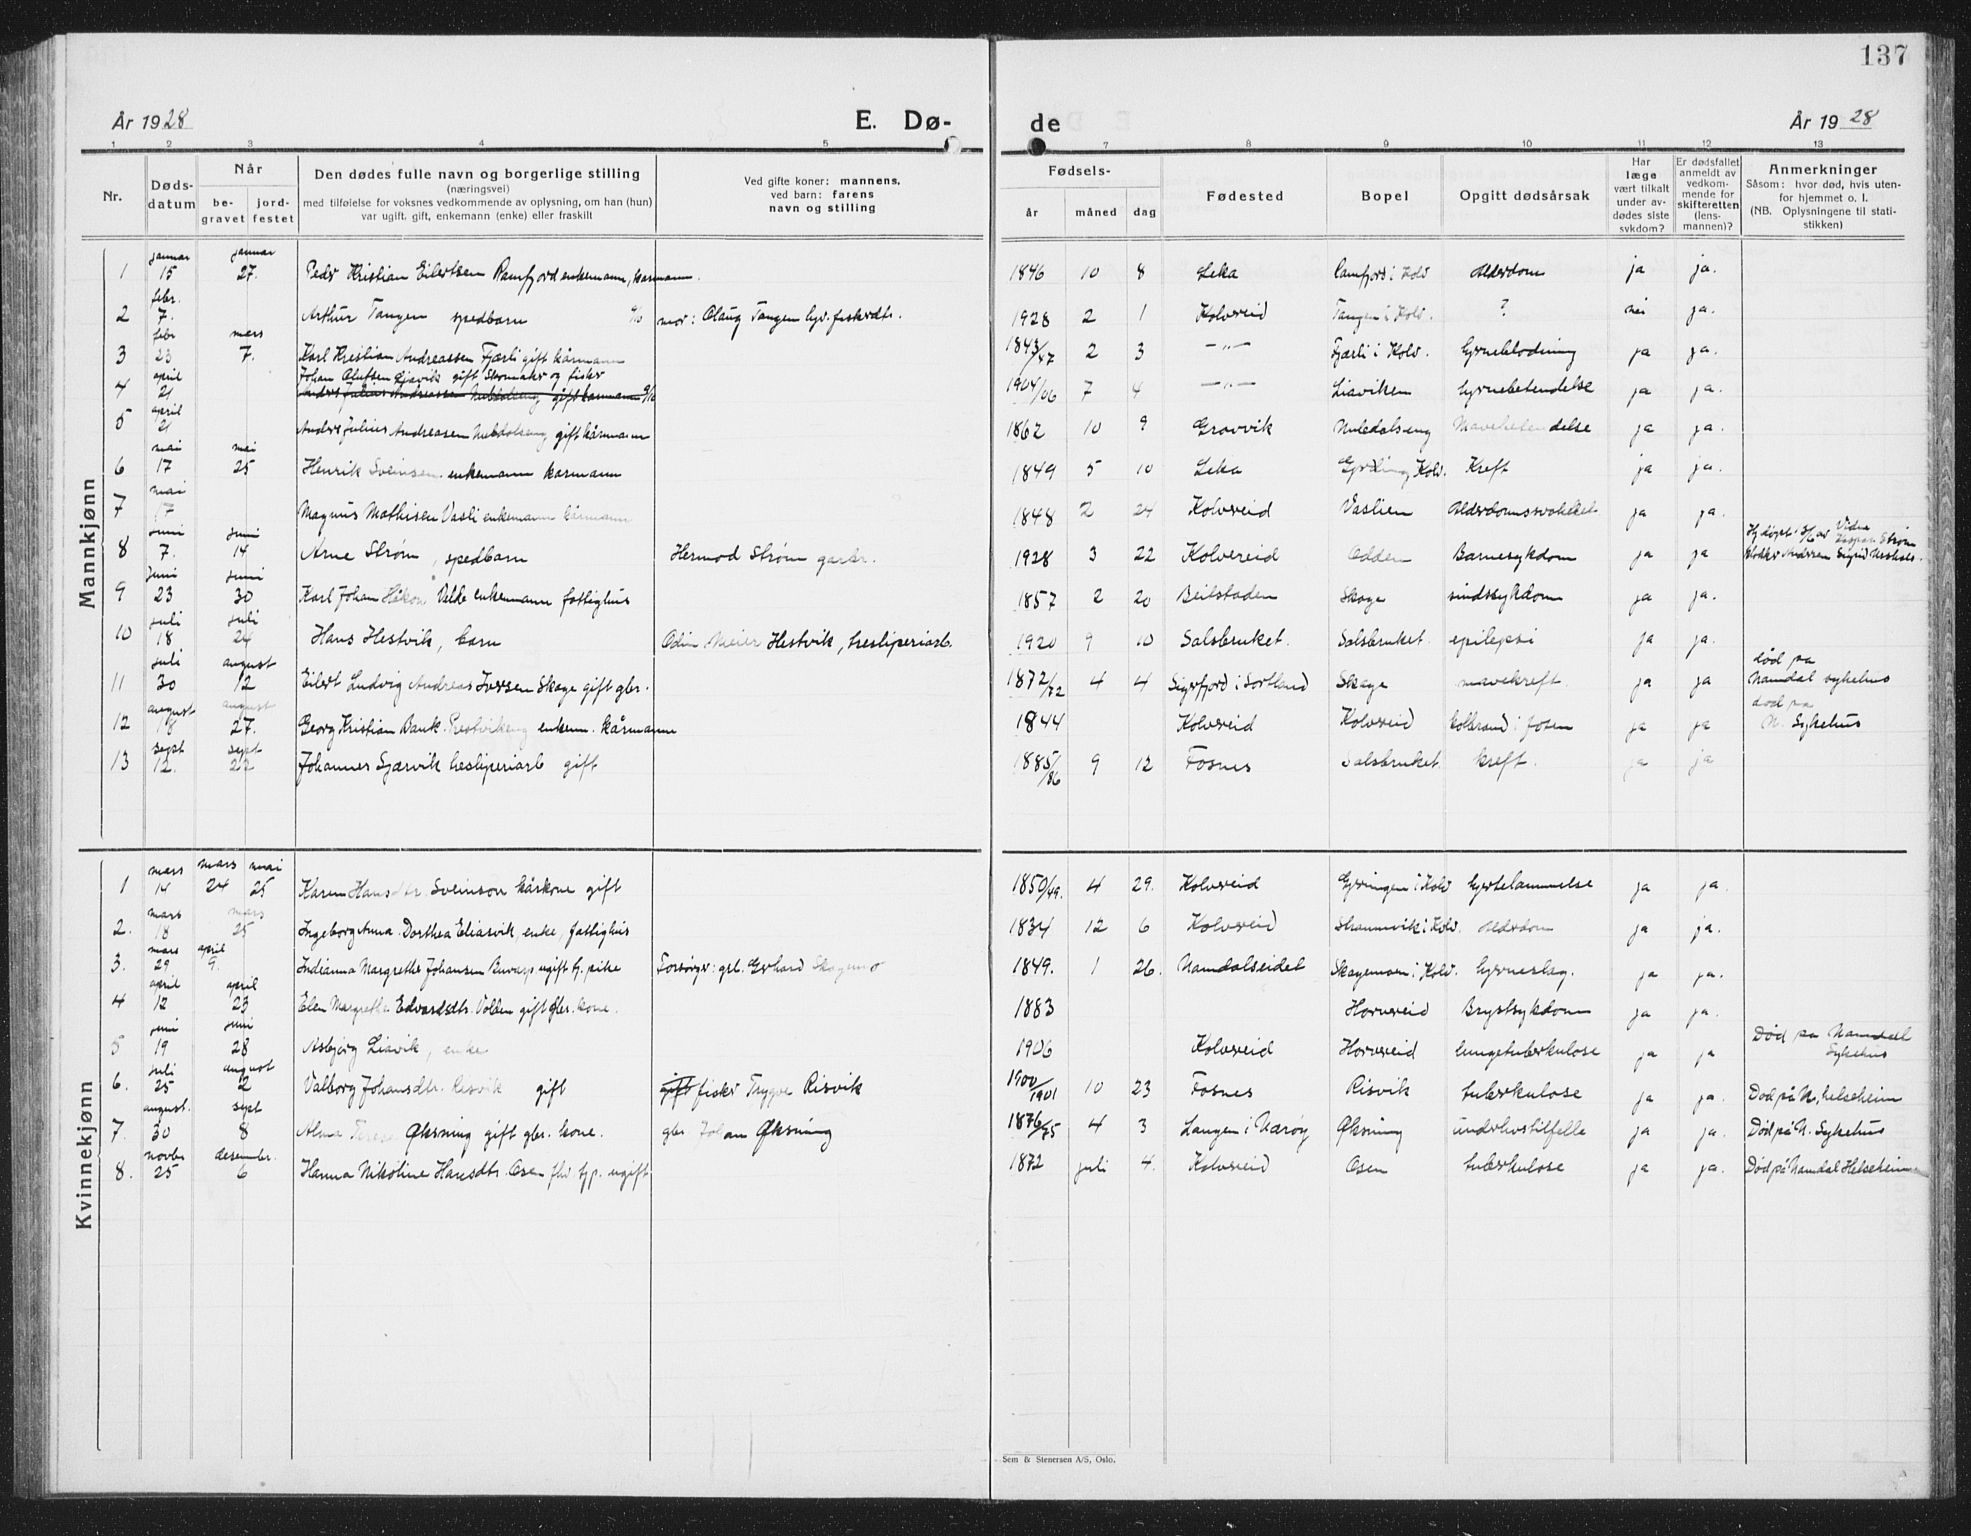 137
År 1928
E. Dø-
de
År 1928
1 2 3 4 5 7 8 9 10 11 12 13
Nr.
Døds-
datum
Når
be-
gravet
jord-
festet
Den dødes fulle navn og borgerlige stilling
(næringsvei)
med tilføielse for voksnes vedkommende av oplysning, om han (hun)
var ugift, gift, enkemann (enke) eller fraskilt
Ved gifte koner: mannens,
ved barn: farens
navn og stilling
Fødsels-
år måned dag
Fødested
Bopel
Opgitt dødsårsak
Har
læge
vært tilkalt
under av-
dødes siste
sykdom?
Er dødsfallet
anmeldt av
vedkom-
mende for
skifteretten
(lens-
mannen)?
Anmerkninger
Såsom: hvor død, hvis uten-
for hjemmet o. l.
(NB. Oplysningene til stati-
stikken)
Mannkjønn
januar januar
1 15 27. Peder Kristian Eilertsen Ramfjord enkemann, kårmann. 1846 10 8 Leka Ramfjord i Kolv Alderdom ja ja.
febr.
2 7. Arthur Tangen spedbarn mor: Olaug Tangen 1928 2 1 Kolvereid Tangen i Kolv. ? nei ja.
febr mars
3 23 7. Karl Kristian Andreassen Fjærli gift kårmann 1843/47 2 3 -"- Fjærli i Kolv. hjerneblødning ja ja.
april Johan Olufsen Liavik gift Skomaker og fisker
4 21 Anders Julius Andreassen gift kårmann 1904/06 7 4 -"- Liaviken hjernebetendelse ja ja.
april
5 21 Anders Julius Andreasen gift kårmann 1862 10 9 Gravvik ja ja.
mai mai
6 17 25 Henrik Sveinsen enkemann kårmann 1849 5 10 Leka Kolv. Kreft ja ja.
mai
7 17 Magnus Mathisen Vasli enkemann kårmann 1848 2 24 Kolvereid Vaslien Alderdomssvakhet ja ja.
juni juni
8 7. 14 Arne Strøm, spedbarn Hermod Strøm 1928 3 22 Kolvereid Odden Barnesykdom ja ja
juni juni
9 23 30 Karl Johan Håkon Velde enkemann fattighus 1857 2 20 Beitstaden Skage sindssykdom ja ja.
juli juli
10 18 24 Hans Hestvik, barn Odin Meier Hestvik, tresliperiarb. 1920 9 10 Salsbruket. Salsbruket. epilepsi ja ja.
juli august død på
11 30 12 Eilert Ludvig Andreas Iversen Skage gift gbr. 1872/72 4 4 Sigerfjord i Sortland Skage mavekreft ja ja Namdal sykehus
august august død på
12 18 27. Georg Kristian Bank enkem. kårmann 1844 Kolvereid Kolvereid kolbrand i foten ja ja N. Sykehus
sept sept
13 12. 22 Johannes tresliperiarb gift 1885/86 9 12 Fosnes Salsbruket kreft. ja ja
Kvinnekjønn
mars mars mai
1 14 24 25 Karen Hansdtr Sveinson kårkone gift 1850/49. 4 29. Kolvereid i Kolv hjertelammelse ja ja.
mars mars
2. 18 25 Ingeborg Anna Dorthea Eliasvik enke, fattighus 1834 12 6 Kolvereid i Kolv. Alderdom ja ja.
mars april
3. 29 9. Indianna Margrethe Johansen ugift tj. pike Forsørger: gbr. Gerhard Skagemo 1849. 1 26. Namdalseidet Skagemoen i Kolv. hjerneslag. ja ja.
april april
4 12 23 Elen Margrethe Edvardsdtr. Volden gift gbr. kone. 1883 Horvereid Brystsykdom ja ja.
juni juni
5 19 28 Asbjørg Liavik, enke 1906 Kolvereid Horvereid lungetuberkulose ja ja Død på Namdal
Sykehus
juli august
6. 25 2 Valborg Johansdtr. Risvik gift gift fisker Trygve Risvik 1900/1901 10 23 Fosnes Risvik tuberkulose ja ja. Død på N. helseheim
august. sept
7. 30 8 Alma Øksning gift gbr. kone. gbr Johan Øksning 1876/75 4 3 Langen i Nærøy Øksning underlivstilfelle ja ja Død på N. Sykehus
novbr desember.
8. 25 6 Hanna Nikoline Hansdtr. Osen ugift 1872 juli 4. Kolvereid Osen tuberkulose ja ja. Død på Namdal Helseheim
Sem & Stenersen A/S, Oslo.